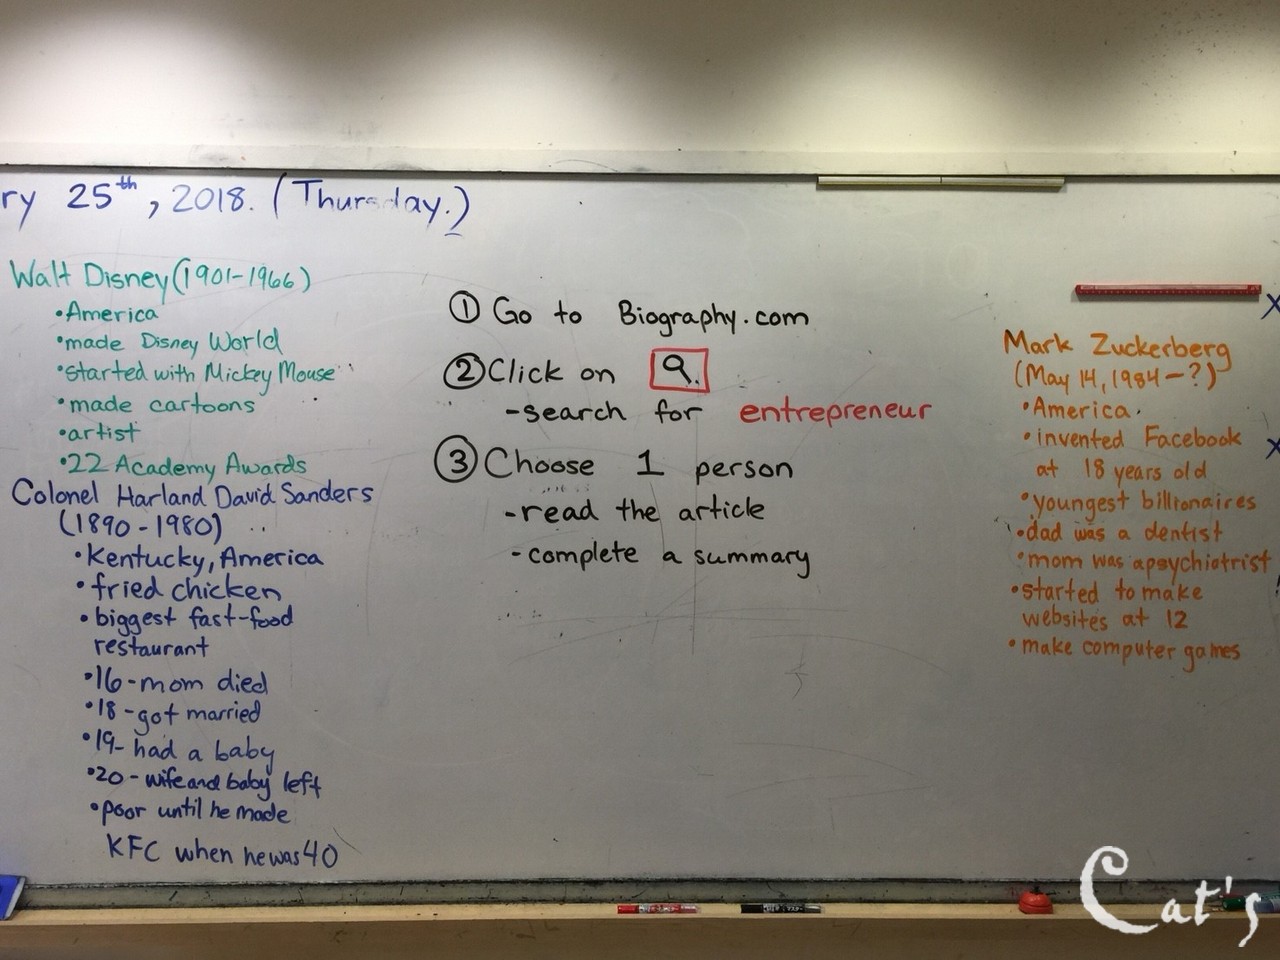 ry 25th, 2018. (Thursday.)
Walt Disney (1901-1966)
•America
•made Disney World
•started with Mickey Mouse
•made cartoons
•artist
•22 Academy Awards
Colonel Harland David Sanders
(1890-1980)
•Kentucky, America
•fried chicken
•biggest fast-food
restaurant
•16-mom died
•18-got married
•19-had a baby
•20-wife and baby left
•poor until he made
KFC when he was 40
① Go to Biography.com
② Click on
-search for entrepreneur
③ Choose 1 person
-read the article
-complete a summary
Mark Zuckerberg
(May 14, 1984-?)
•America
•invented Facebook
at 18 years old
•youngest billionaires
•dad was a dentist
•mom was a psychiatrist
•started to make
websites at 12
•make computer games
Cat's